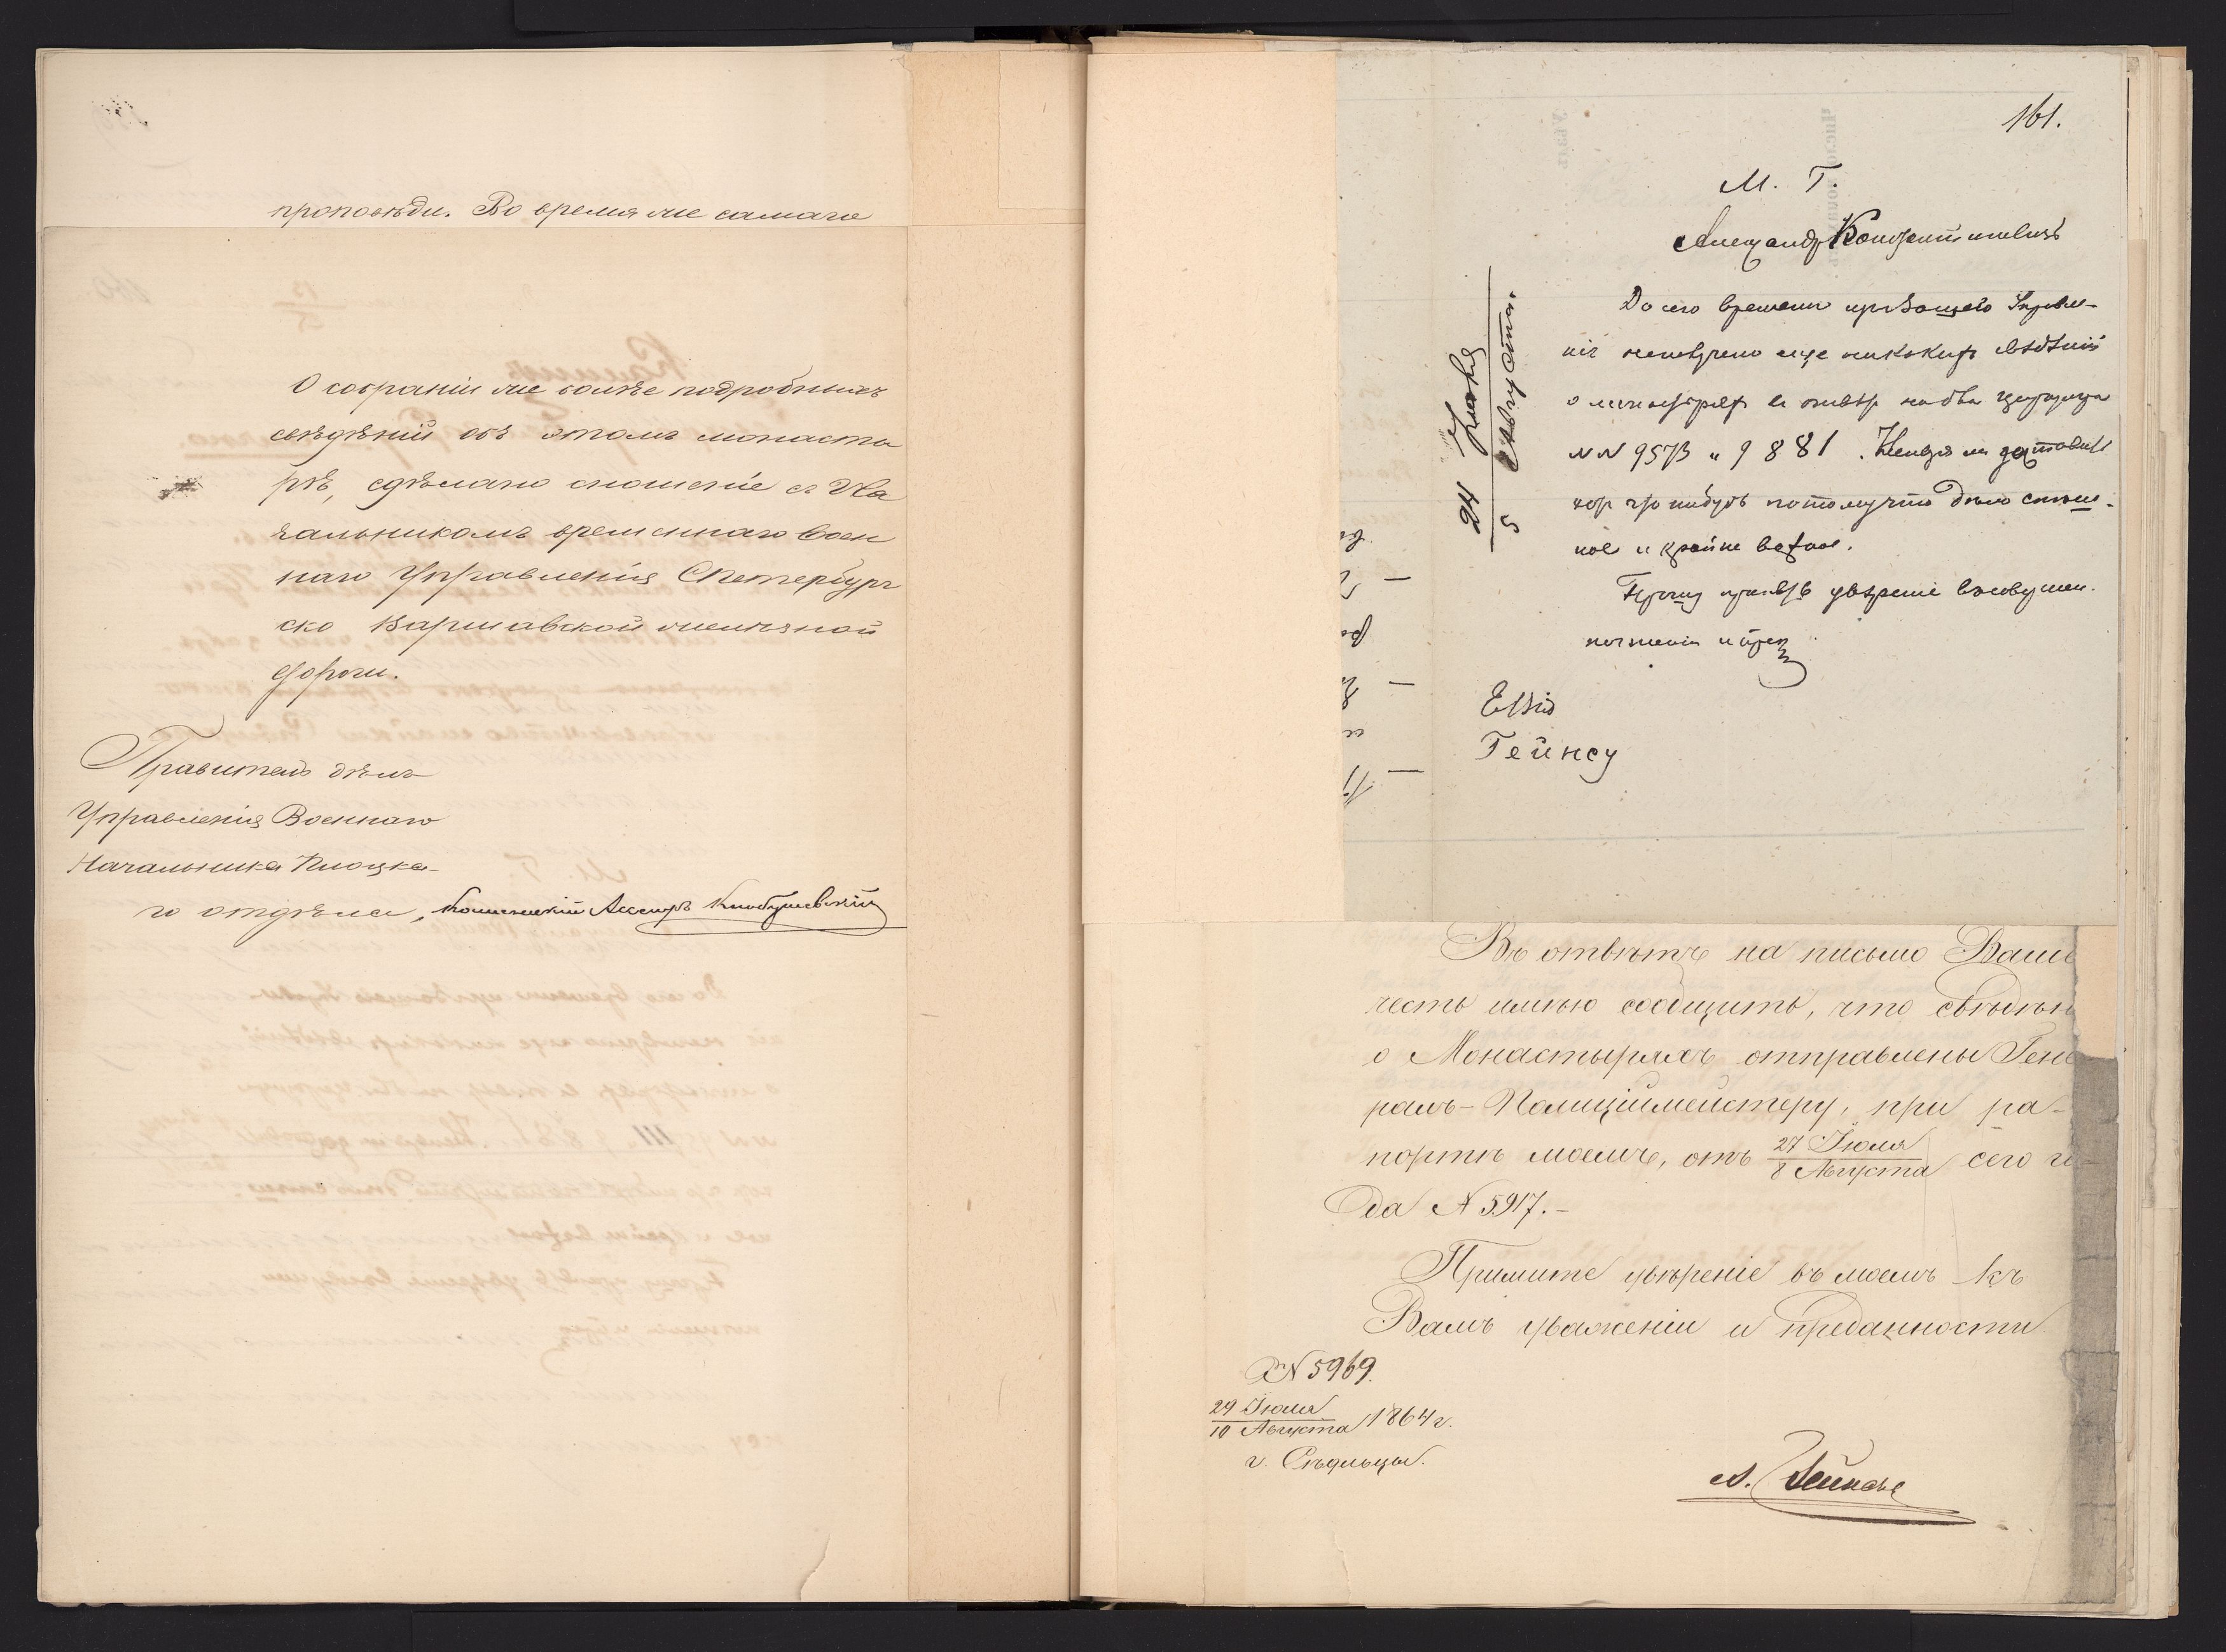 проповѣди. Во время же самаго
О собраніи же болѣе подробныхъ
свѣдѣній объ этомъ монасты
рѣ, сдѣлано сношеніе съ На
чальникомъ временнаго воен
наго Управленія СПетербург
ско Варшавской желѣзной
дороги.
Правитель дѣлъ
Управленія Военнаго
Начальника Плоцка-
го отдѣла,
161.
М. Г.
Александръ Константиновичъ
24 Іюля
5 Августа
До сего времени изъ Вашего Управле-
нія неполучено еще никакихъ свѣдѣній
о монастыряхъ въ отвѣтъ на два циркуляра
NN 9573 и 9881. Нельзя ли доставить
хоть что нибудь потомучто дѣло спѣш-
ное и крайне важное.
Прошу принять увѣреніе въ совершен.
почтеніи и пред
Гейнсу
Въ отвѣтъ на письмо Ваше
честь имѣю сообщить, что свѣдѣн
о Монастыряхъ отправлены Гене
ралъ-Полиціймейстеру, при ра-
портѣ моемъ, отъ 27 Іюля / 8 Августа сего го-
да N 5917.-
Примите увѣреніе въ моемъ къ
Вамъ уваженіи и преданности
N 5969.
29 Іюля / 10 Августа 1864 г.
г. Сѣдльцы.
А. Гейнсъ